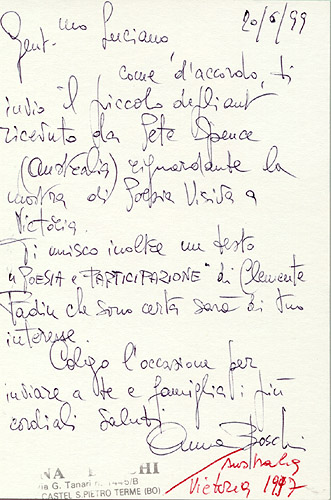 20/6/99
Gent.mo Luciano,
come d'accordo, ti
invio il piccolo depliant
ricevuto da Pete Spence
(Australia) riguardante la
mostra di Poesia Visiva a
Victoria.
Ti unisco inoltre un testo
"POESIA e PARTICIPAZIONE" di Clemente
Padin che sono certa sarà di tuo
interesse.
Colgo l'occasione per
inviare a te e famiglia i più
cordiali saluti
Anna Boschi
NA CHI
ia G. Tanari n. 1445/B
CASTEL S.PIETRO TERME (BO)
Australia
Victoria 1997